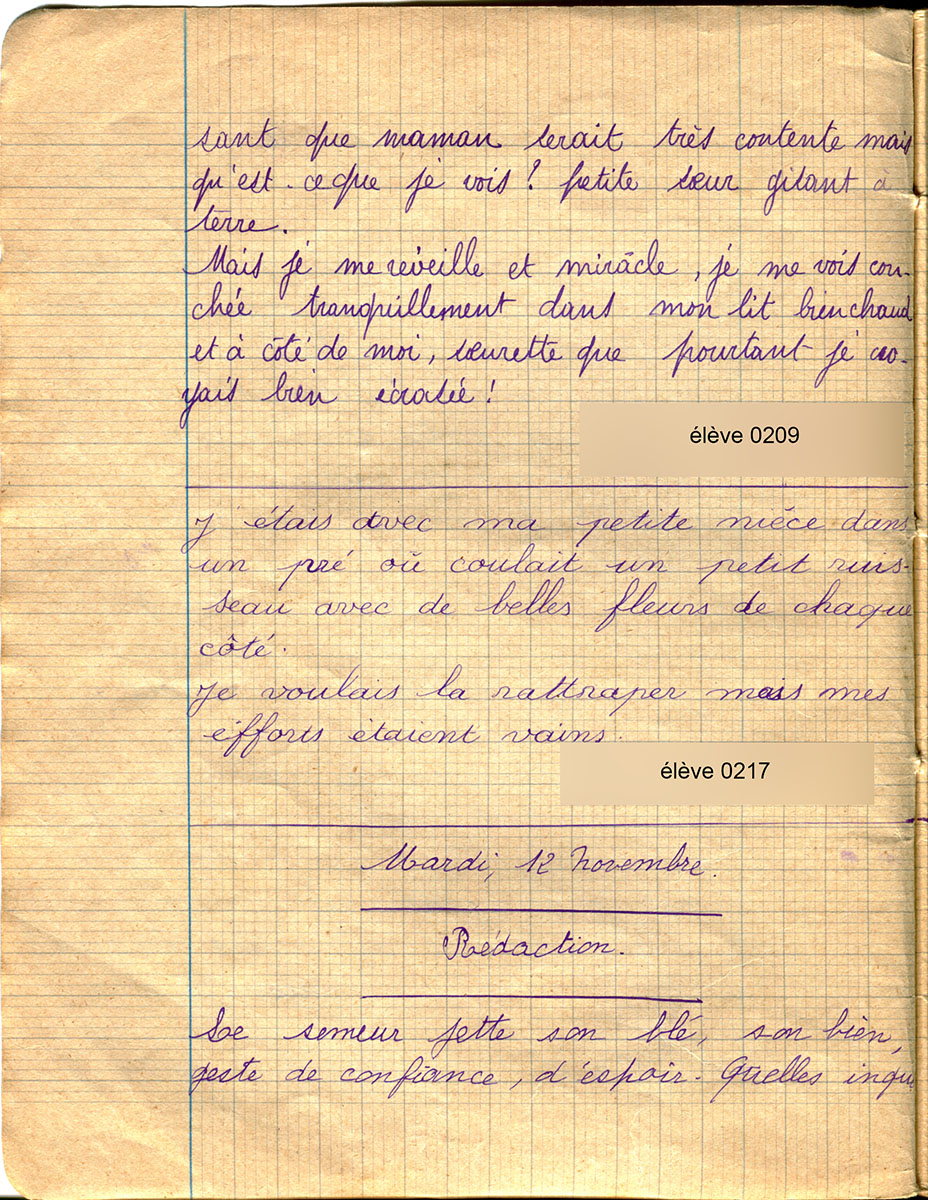 sant que maman serait très contente mais
qu'est-ce que je vois ? petite sœur gisant à
terre.
Mais je me réveille et miracle, je me vois cou-
chée tranquillement dans mon lit bien chaud
et à côté de moi, sœurette que pourtant je cro-
yais bien écrasée !
élève 0209
J étais avec ma petite niéce dans
un pré où coulait un petit ruis-
seau avec de belles fleurs de chaque
côté.
Je voulais la rattraper mais mes
efforts étaient vains.
élève 0217
Mardi, 12 Novembre.
Rédaction.
Le semeur jette son blé, son bien,
geste de confiance, d'espoir. Quelles inqu